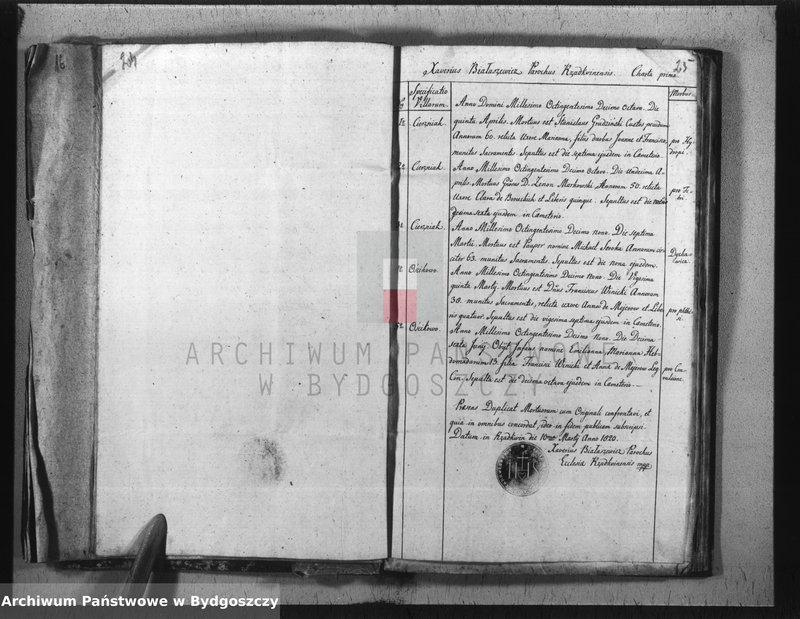 16
204
205
Xaverius Białaszewicz Parochus Rządkvinensis. Charta prima
Specificatio
Villarum.
Morbus.
Anno Domini Millesimo Octingentesimo Decimo octavo. Die
1. Cierzniak. quinta Aprilis. Mortuus est Stanislaus Grudzinski Custos
Annorum 60. relicta uxore Marianna, filiis duobus Joanne et Francisco
munitus Sacramentis. Sepultus est die septima ejusdem in Cœmeterio.
pro Hy
dropi.
2. Cierzniak. Anno Millesimo Octingentesimo Decimo octavo. Die Undecima A-
prilis. Mortuus D. Zenon Markowski Annorum 50. relicta
uxore Clara de et Liberis quinque. Sepultus est die
decima sexta ejusdem in Cœmeterio.
pro Fe
bri.
3. Cierzniak. Anno Millesimo Octingentesimo Decimo nono. Die septima
Martii. Mortuus est Pauper nomine Michael Sroka Annorum cir-
citer 63. munitus Sacramentis. Sepultus est die nona ejusdem.
Dycha-
wica.
Ościkowo. Anno Millesimo Octingentesimo Decimo Nono. Die Vigesima
quinta Martij. Mortuus est Dnus Franciscus Winicki Annorum
38. munitus Sacramentis, relicta uxore Anna de Majerow et Libe-
ris quatuor. Sepultus est die vigesima septima ejusdem in Cœmeterio.
pro phthi-
si.
5. Ościkowo. Anno Millesimo Octingentesimo Decimo Nono. Die Decima
sexta Junij. Obiit Infans nomine Emelianna, Marianna Heb-
domadarum 13. filia Francisci Winicki et Anna de Majerow Leg.
Con. Sepulta est die decima octava ejusdem in Cœmeterio.
pro Con-
vulsione.
Præsens Duplicat Mortuorum cum Originali confrontavi, et
quia in omnibus concordat, ideo in fidem publicam subscripsi.
Datum in Rządkwin die 10ma Martij Anno 1820.
Xaverius Białaszewicz Parochus
Ecclesiæ Rządkvinensis mpp
IHS
ARCHIWUM PAŃSTWOWE
W BYDGOSZCZY
Archiwum Państwowe w Bydgoszczy